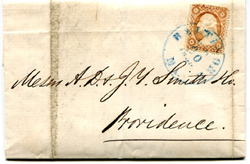 Messrs A. D. & J. Y. Smith & Co.
Providence.